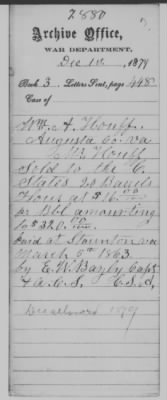 2880
Archive Office,
WAR DEPARTMENT,
Dec 1st, 1879
Book 3, Letters Sent, page 448
Case of
Wm. A. Houff.
Augusta Co. Va
Houff
Sold to the C.
States 20 Barrels
Flour at $16.
pr Bbl amounting
to $320.
Paid at Staunton Va
March 5th 1863
by E. W. Bayly Capt
& A.C.S. C.S.A.
1879